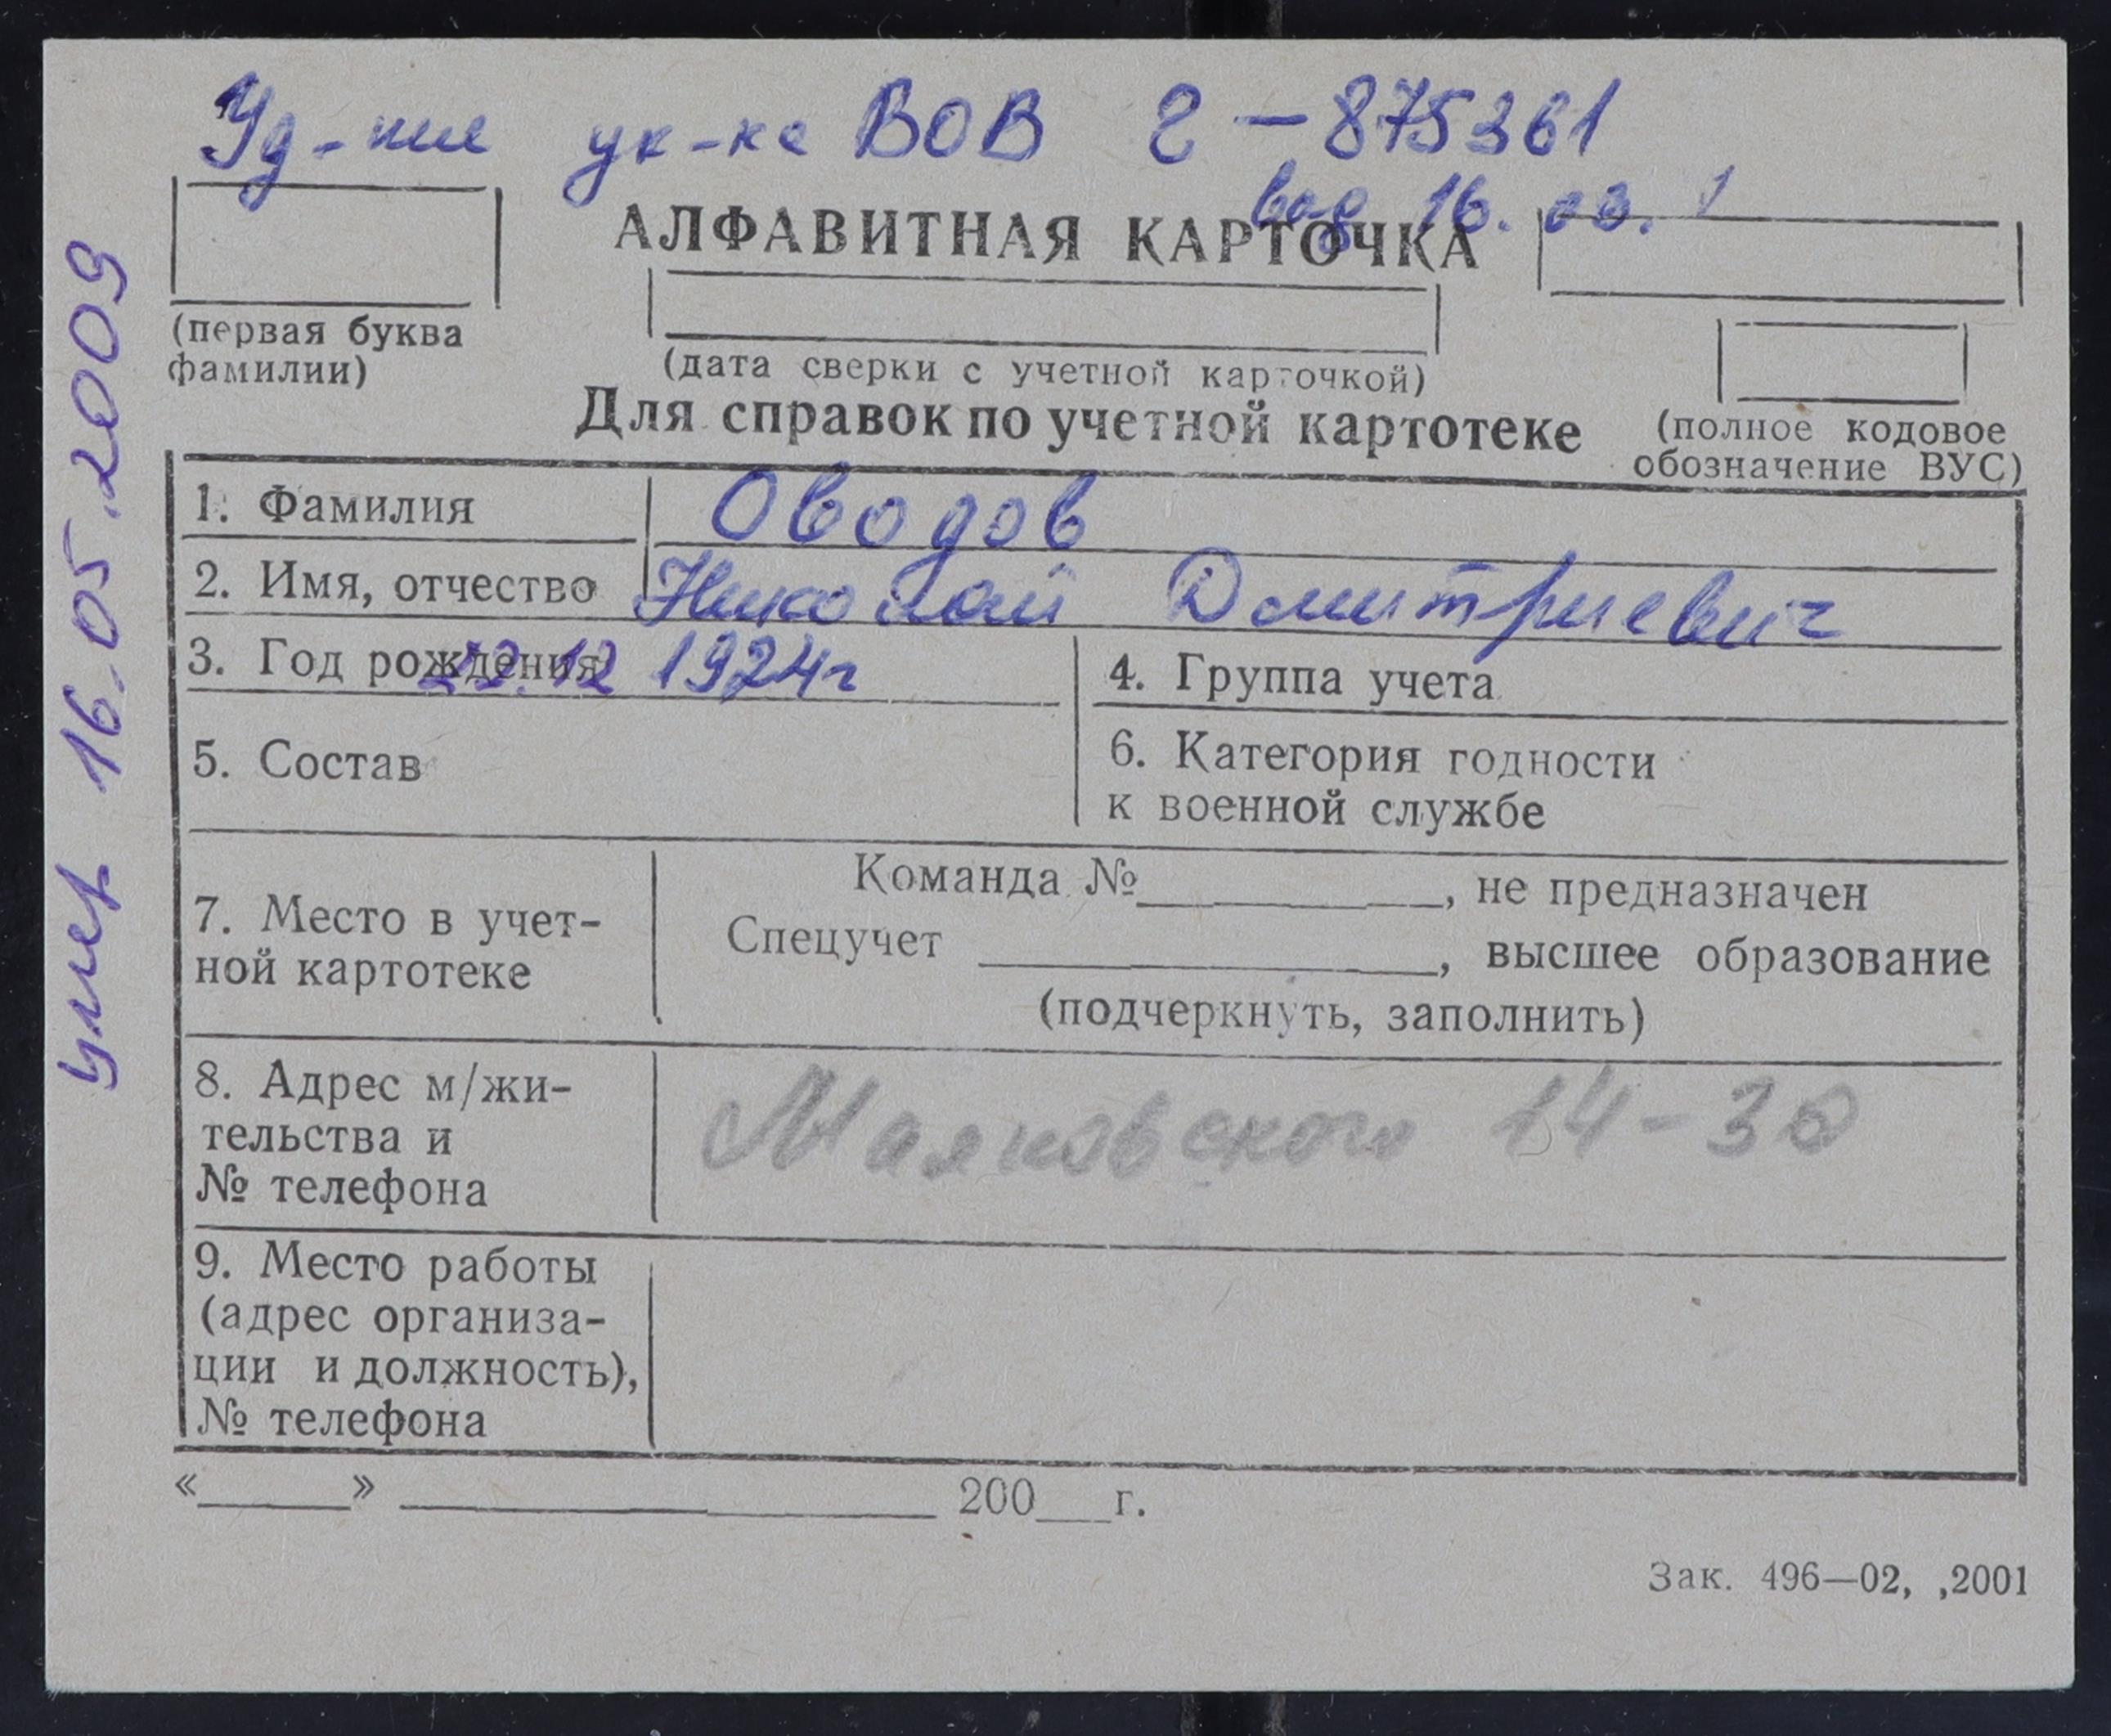 Уд-ние ук-ка ВОВ Г-875361
выд 16. 03.
АЛФАВИТНАЯ КАРТОЧКА
(первая буква
фамилии)
(дата сверки с учетной карточкой)
Для справок по учетной картотеке
(полное кодовое
обозначение ВУС)
умер 16.05.2009
1. Фамилия Оводов
2. Имя, отчество Николай Дмитриевич
3. Год рождения 12 1924г
4. Группа учета
5. Состав
6. Категория годности
к военной службе
7. Место в учет-
ной картотеке
Команда №________, не предназначен
Спецучет ________, высшее образование
(подчеркнуть, заполнить)
8. Адрес м/жи-
тельства и
№ телефона
Маяковского 14-30
9. Место работы
(адрес организа-
ции и должность),
№ телефона
«____» ____________ 200__г.
Зак. 496—02, ,2001